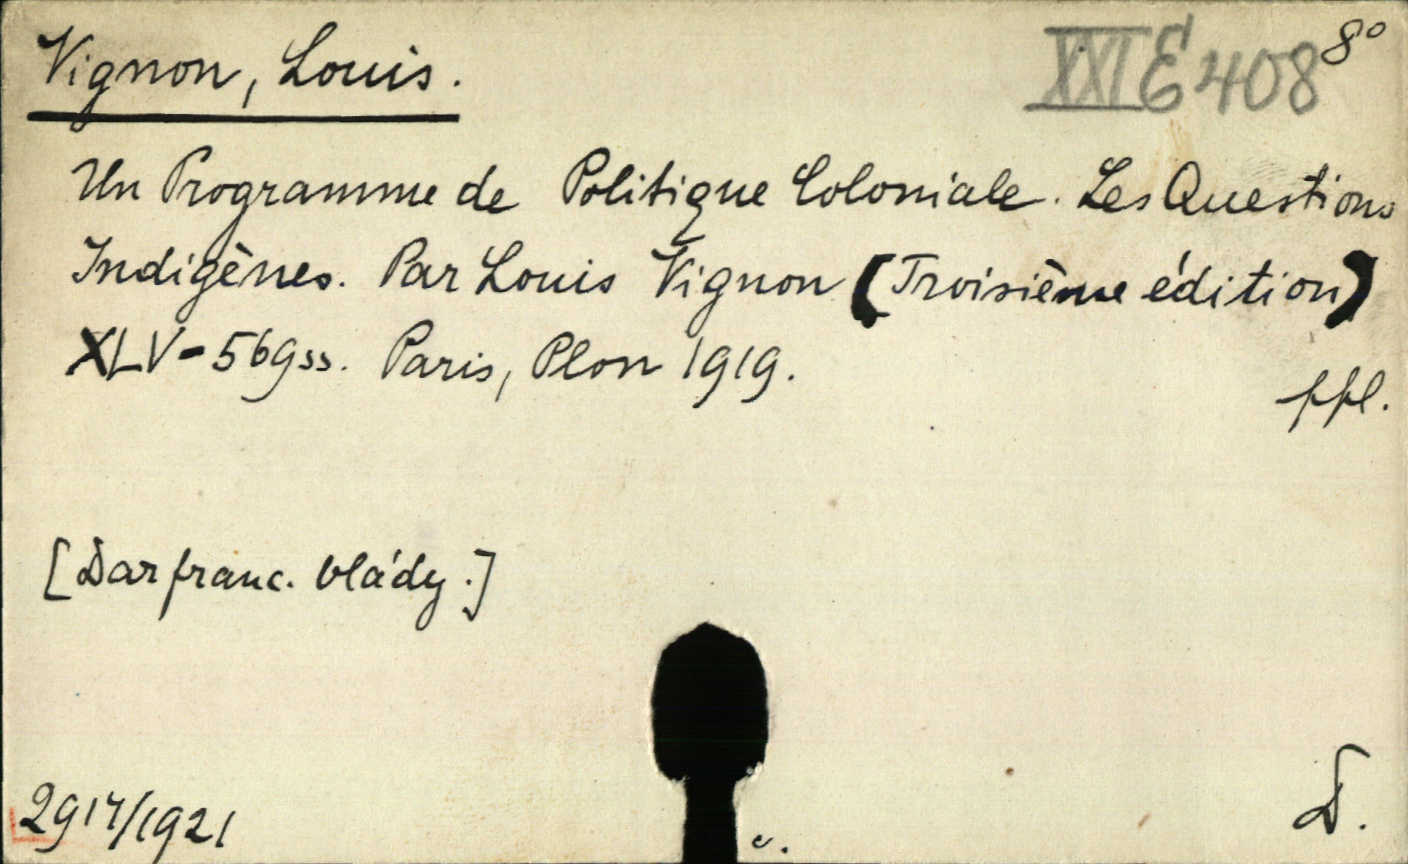 Vignon, Louis. XXI E 408 8°
Un Programme de Politique Coloniale. Les Questions
Indigènes. Par Louis Vignon (Troisième édition)
XLV-569 ss. Paris, Plon 1919.
ppl.
[Dar franc. vlády.]
2917/1921
c. D.